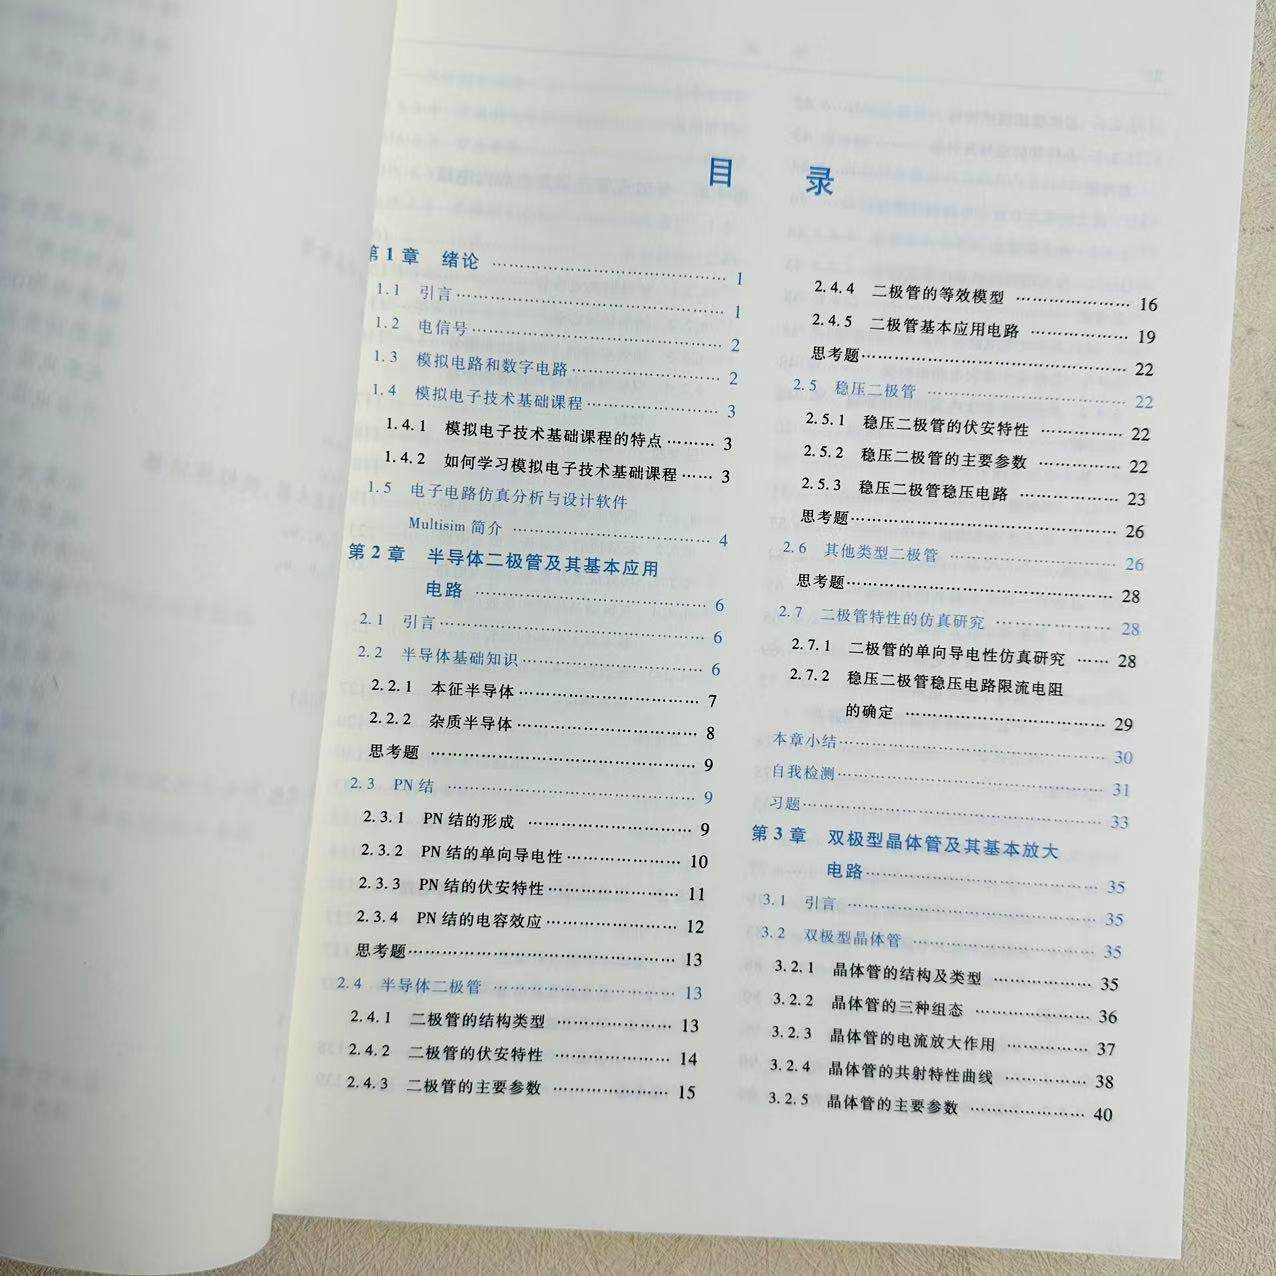 目 录
第 1 章 绪论 ……………………………… 1
1.1 引言 ……………………………… 1
1.2 电信号 ……………………………… 2
1.3 模拟电路和数字电路 ……………………… 2
1.4 模拟电子技术基础课程 …………………… 3
1.4.1 模拟电子技术基础课程的特点 ……… 3
1.4.2 如何学习模拟电子技术基础课程 …… 3
1.5 电子电路仿真分析与设计软件
Multisim 简介 ……………………………… 4
第 2 章 半导体二极管及其基本应用
电路 ……………………………… 6
2.1 引言 ……………………………… 6
2.2 半导体基础知识 ……………………… 6
2.2.1 本征半导体 ……………………… 7
2.2.2 杂质半导体 ……………………… 8
思考题 ……………………………… 9
2.3 PN 结 ……………………………… 9
2.3.1 PN 结的形成 ……………………… 9
2.3.2 PN 结的单向导电性 ……………… 10
2.3.3 PN 结的伏安特性 ………………… 11
2.3.4 PN 结的电容效应 ………………… 12
思考题 ……………………………… 13
2.4 半导体二极管 ……………………… 13
2.4.1 二极管的结构类型 ……………… 13
2.4.2 二极管的伏安特性 ……………… 14
2.4.3 二极管的主要参数 ……………… 15
2.4.4 二极管的等效模型 ……………… 16
2.4.5 二极管基本应用电路 …………… 19
思考题 ……………………………… 22
2.5 稳压二极管 ……………………… 22
2.5.1 稳压二极管的伏安特性 ………… 22
2.5.2 稳压二极管的主要参数 ………… 22
2.5.3 稳压二极管稳压电路 …………… 23
思考题 ……………………………… 26
2.6 其他类型二极管 ……………………… 26
思考题 ……………………………… 28
2.7 二极管特性的仿真研究 ……………… 28
2.7.1 二极管的单向导电性仿真研究 …… 28
2.7.2 稳压二极管稳压电路限流电阻
的确定 ……………………………… 29
本章小结 ……………………………… 30
自我检测 ……………………………… 31
习题 ……………………………… 33
第 3 章 双极型晶体管及其基本放大
电路 ……………………………… 35
3.1 引言 ……………………………… 35
3.2 双极型晶体管 ……………………… 35
3.2.1 晶体管的结构及类型 …………… 35
3.2.2 晶体管的三种组态 ……………… 36
3.2.3 晶体管的电流放大作用 ………… 37
3.2.4 晶体管的共射特性曲线 ………… 38
3.2.5 晶体管的主要参数 ……………… 40